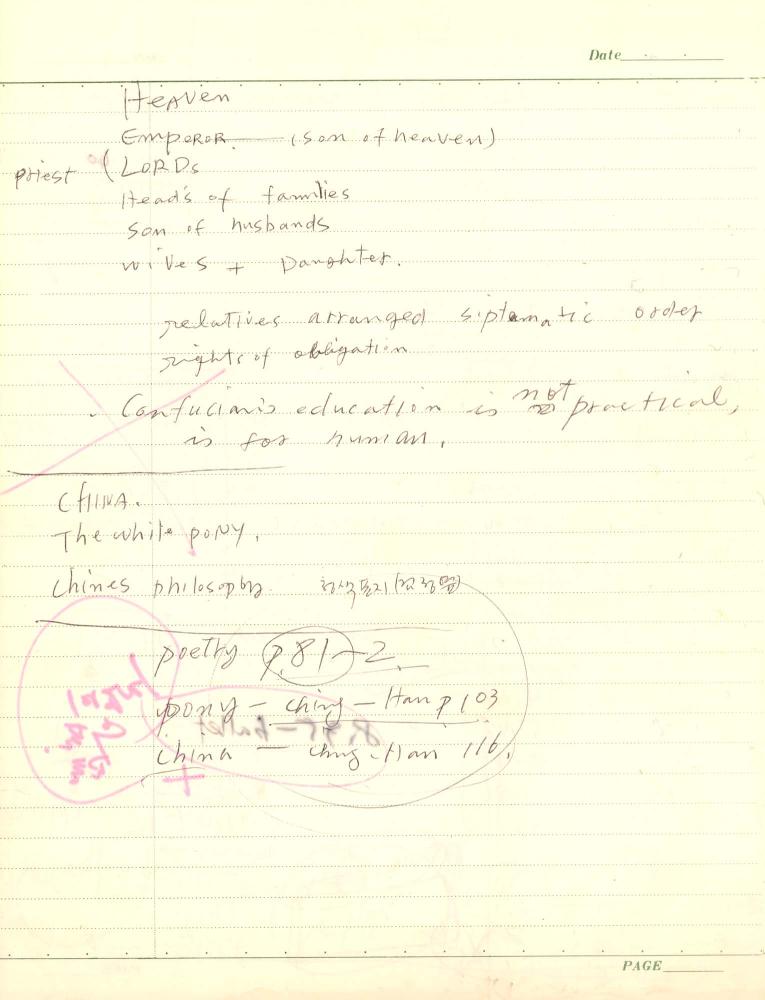 Date
Heaven
Emperor — (son of heaven)
priest ( LORDs
Heads of families
son of husbands
wives + Daughter.
relatives arranged order
rights of obligation
. education is not practical,
is for human.
CHINA.
The white pony.
Chines philosophy
poetry p. 81-2.
pony - ching - Han p 103
China - ching-Han 116.
PAGE